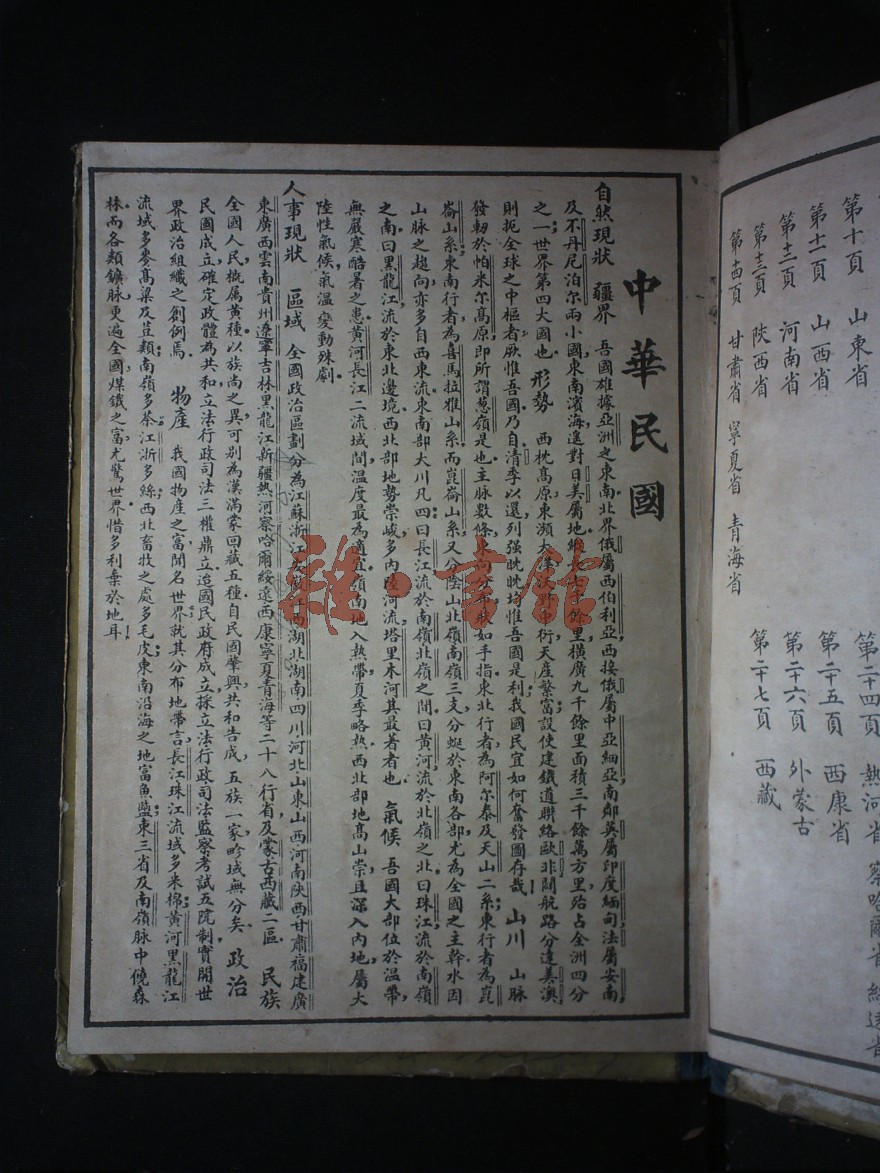 第十頁 山東省
第十一頁 山西省
第十二頁 河南省
第十三頁 陝西省
第十四頁 甘肅省 寧夏省 青海省
第二十四頁 熱河省 察哈爾省 綏遠省
第二十五頁 西康省
第二十六頁 外蒙古
第二十七頁 西藏
中華民國
自然現狀 疆界 吾國雄據亞洲之東南北界俄屬西伯利亞西接俄屬中亞細亞南鄰英屬印度緬甸法屬安南
及不丹尼泊尔兩小國東南濱海遙對日美屬地縱七千餘里橫廣九千餘里面積三千餘萬方里殆占全洲四分
之一世界第四大國也 形勢 西枕高原東瀕大洋沃野中衍天產繁富設使建鐵道聯絡歐非開航路分達美澳
則扼全球之中樞者厥惟吾國乃自清季以還列强眈眈埼惟吾國是利我國民宜如何奮發圖存哉 山川 山脈
發軔於帕米尔高原即所謂葱嶺是也主脉數條東向分布狀如手指東北行者為阿尔泰及天山二系東行者為崑
崙山系東南行者為喜馬拉雅山系而崑崙山系又分陰山北嶺南嶺三支分蜒於東南各部尤為全國之主幹水因
山脈之趨向亦多自西東流東南部大川凡四曰長江流於南嶺北嶺之間曰黃河流於北嶺之北曰珠江流於南嶺
之南曰黑龍江流於東北邊境西北部地勢崇峻多內陸河流塔里木河其最著者也 氣候 吾國大部位於溫帶
無嚴寒酷暑之患黃河長江二流域間溫度最為適宜嶺南地入熱帶夏季略熱西北部地高山崇且深入內地屬大
陸性氣候氣溫變動殊劇
人事現狀 區域 全國政治區劃分為江蘇浙江安徽江西湖北湖南四川河北山東山西河南陝西甘肅福建廣
東廣西雲南貴州遼寧吉林黑龍江新疆熱河察哈爾綏遠西康寧夏青海等二十八行省及蒙古西藏二區 民族
全國人民概属黃種以族尚之異可別為漢滿蒙回藏五種自民國肇興共和告成五族一家畛域無分矣 政治
民國成立確定政體為共和立法行政司法三權鼎立迨國民政府成立採立法行政司法監察考試五院制實開世
界政治組織之創例焉 物產 我國物產之富聞名世界就其分布地帶言長江珠江流域多米棉黃河黑龍江
流域多麥高粱及荳類南嶺多茶江浙多絲西北畜牧之處多毛皮東南沿海之地富魚鹽東三省及南嶺脉中饒森
林而各類鑛脉更遍全國煤鐵之富尤驚世界惜多利棄於地耳